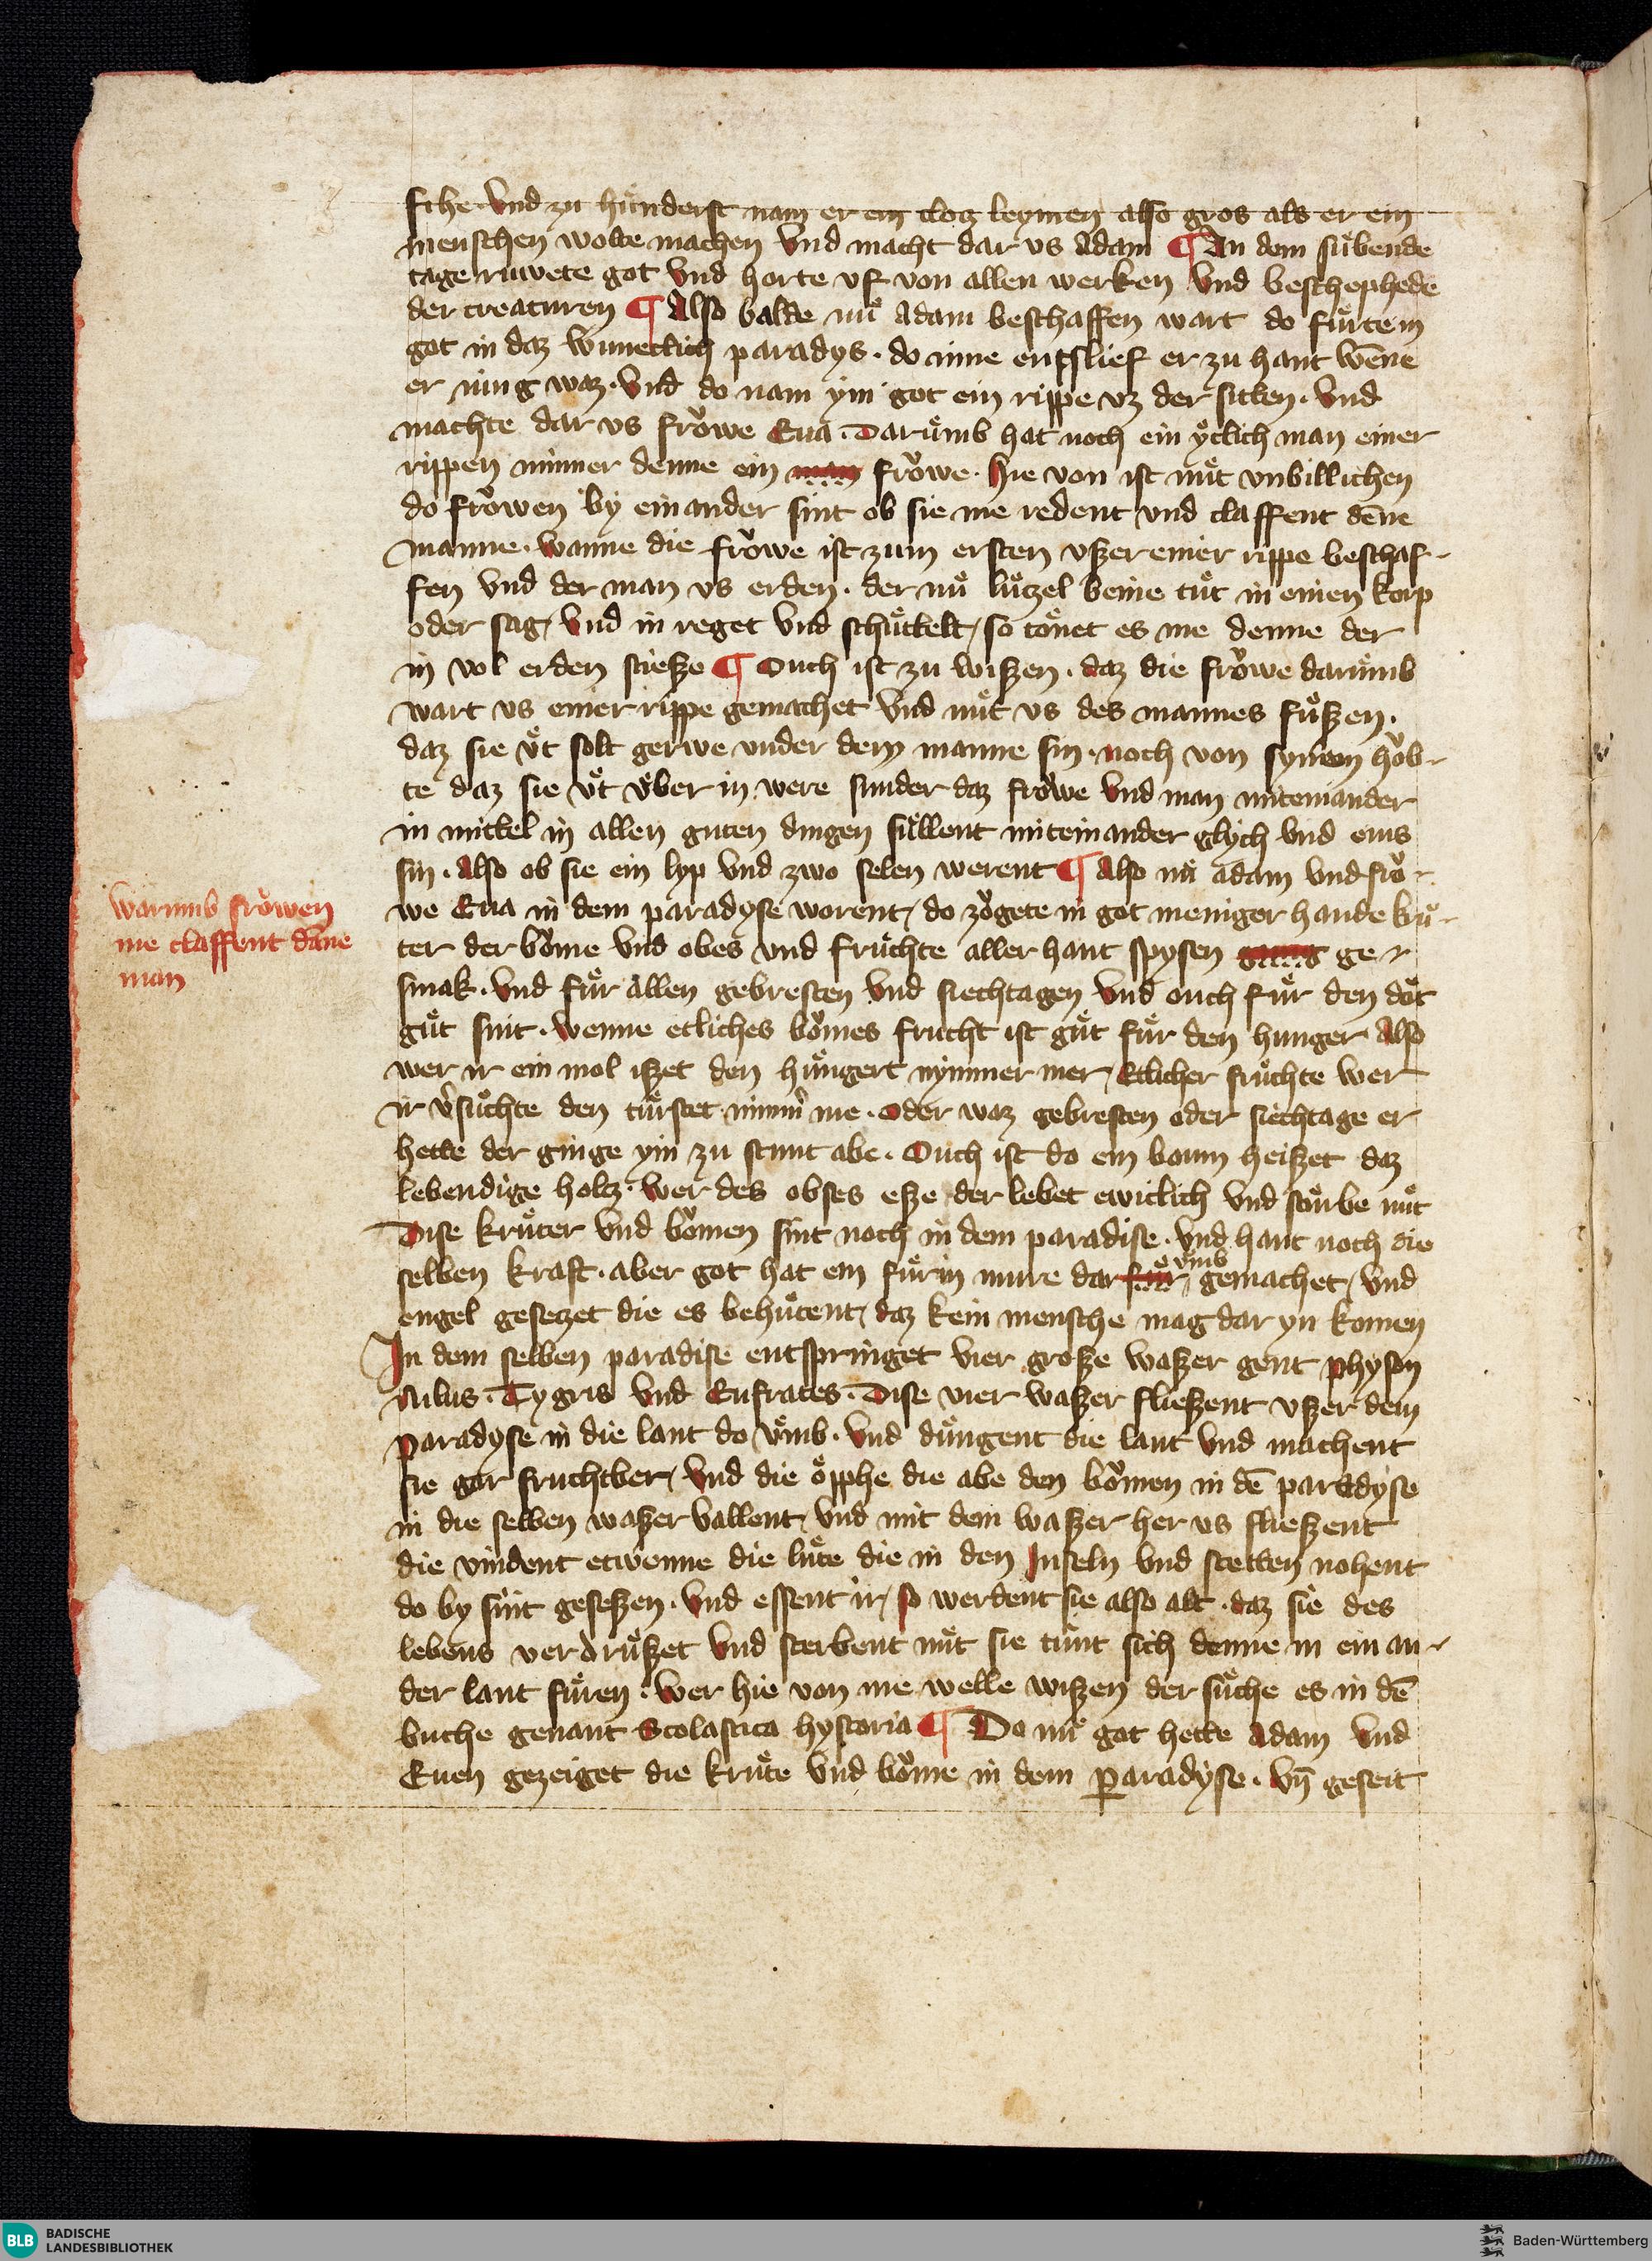 sche. Vnd zu hünderst nam er ein clotz leymen also gros als er ein
menschen wolte machen Vnd macht dar vs Adam ¶ An dem sübende
tage ruwete got Vnd horte vf von allen werken Vnd beschephede
der creaturen ¶ Also balde nuͦ Adam beschaffen wart do fuͤrte in
got in daz wunecklich paradys. do inne entslief er zu hant wēne
er nüg waz. Vnd do nam ym got ein rippe vz der sitten. Vnd
machte dar vs froͧwe Eua. Daruͤmb hat noch ein yͤclich man einer
rippen minner denne ein man froͧwe. hie von ist nuͤt vnbillichen
do froͧwen by einander sint ob sie me redent vnd claffent dēne
manne. wanne die froͧwe ist zum ersten vszer einer rippe beschaf-
fen vnd der man vs erden. der nuͦ luͤtzel beine tuͦt in einen korp
oder sag, Vnd in reget vnd schuͤttelt, so toͤnet es me denne der
in vol erden stiesze ¶ Ouch ist zu wiszen. daz die froͧwe daruͤmb
wart vs einer rippe gemachet Vnd nuͤt vs des mannes fuͤszen.
daz sie vͤt solt gerwe vnder dem manne sin. noch von synem hoͧb-
te daz sie vͤt vͤber in were sunder daz froͧwe Vnd man miteinander
in mittel in allen guten dingen suͤllent miteinander glych Vnd eins
sin. Also ob sie ein lyp Vnd zwo selen werent ¶ Also nuͦ adam vnd froͧ-
we Eua in dem paradyse worent, do zoͤgete in got meniger hande kruͤ-
ter der boͧme Vnd obes Vnd fruͤchte aller hant spysen ge-
smak. Vnd fuͤr allen gebresten Vnd siechtagen Vnd ouch fuͤr den doͤt
guͤt sint. wenne etliches boͧmes frucht ist guͤt fuͤr den hunger Also
wer ir ein mol iszet den huͤngert nymmer mer, Etlicher fruͤchte wer
ir v͛suͦchte den tuͤrstet nimm͛ me. Oder waz gebresten oder siechtage er
hette der ginge ym zu stunt abe. Ouch ist do ein boum heiszet daz
lebendige holtz. wer des obses esze der lebet ewiclich Vnd stuͤrbe nuͤt
Dise kruͤter Vnd boͧmen sint noch in dem paradise. vnd hant noch die
selben kraft. aber got hat ein fuͤrin mure dar fuͤr vͤmb gemachet, Vnd
engel gesetzet die es behuͤtent, daz kein mensche mag dar yn komen
In dem selben paradise entspringet vier grosze waszer gent physon
Nilus. Tygris Vnd Eufrates. Dise vier waszer flieszent vszer dem
paradyse in die lant do vͤmb. Vnd duͤngent die lant Vnd machent
sie gar fruchtber, Vnd die oͤpphe die abe den boͧmen in dē paradyse
in die selben waszer vallent, Vnd mit dem waszer her vs flieszent
die vindent etwenne die luͤte die in den Inseln Vnd stetten nohent
do by sint geseszen. Vnd essent ir, so werdent sie also alt. daz sie des
lebens verdruͤszet Vnd sterbent nuͤt sie tuͤnt sich denne in ein an-
der lant fuͤren. wer hie von me welle wiszen der suͤche es in dē
buche genant Scolastica hystoria ¶ Do nuͦ got hette Adam Vnd
Euen gezeiget die kruͤte Vnd boͧme in dem paradyse. Vn̄ geseit
warumb froͧwen
me claffent dāne
man
BLB BADISCHE
LANDESBIBLIOTHEK
Baden-Württemberg